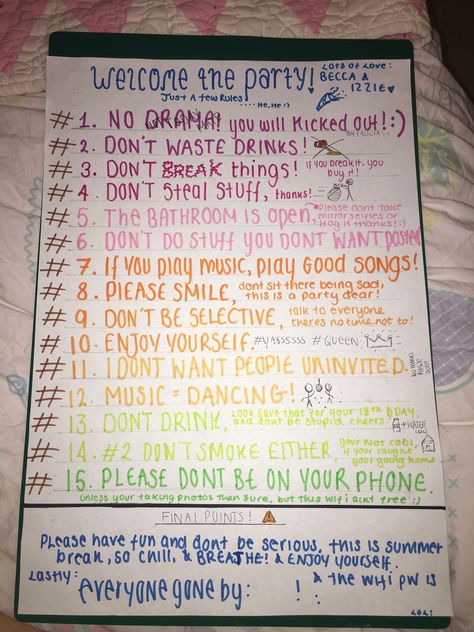 Welcome the party!
Lots of Love:
BECCA &
IZZIE
Just A few Rules!
....He, He :)
# 1. NO DRAMA! you will Kicked out! :)
# 2. DON'T WASTE DRINKS!
# 3. DON'T BREAK things! If you break it, you
buy it!
# 4. DON'T Steal STUFF, thanks!
# 5. The BATHROOM IS open, please dont take
mirror selfies or
hog it thanks!:)
# 6. DON'T DO STUFF YOU DONT WANT posted
# 7. If YOU Play MUSIC, Play GOOD SONGS!
# 8. PLEASE SMILE, dont sit there being sad,
this is a party dear!
# 9. DON'T BE SELECTIVE, talk to everyone
theres no time not to!
# 10. ENJOY YOURSELF. #YASSSSSS #QUEEN
# 11. I DONT WANT PEOPLE UNINVITED.
# 12. MUSIC = DANCING!
# 13. DON'T DRINK, Look save that for your 18th BDAY,
and dont be stupid cheers
WATER
# 14. #2 DON'T SMOKE EITHER, your Not cool,
if your caught
your going home
# 15. PLEASE DONT BE ON YOUR PHONE.
unless your taking photos then sure, but this wifi aint free :)
FINAL POINTS!
Please have fun and dont be serious, this is summer
break, so chill, & BREATHE! & ENJOY yourself.
Lastly: & the wifi pw is
everyone gone by: ! :
LOL!